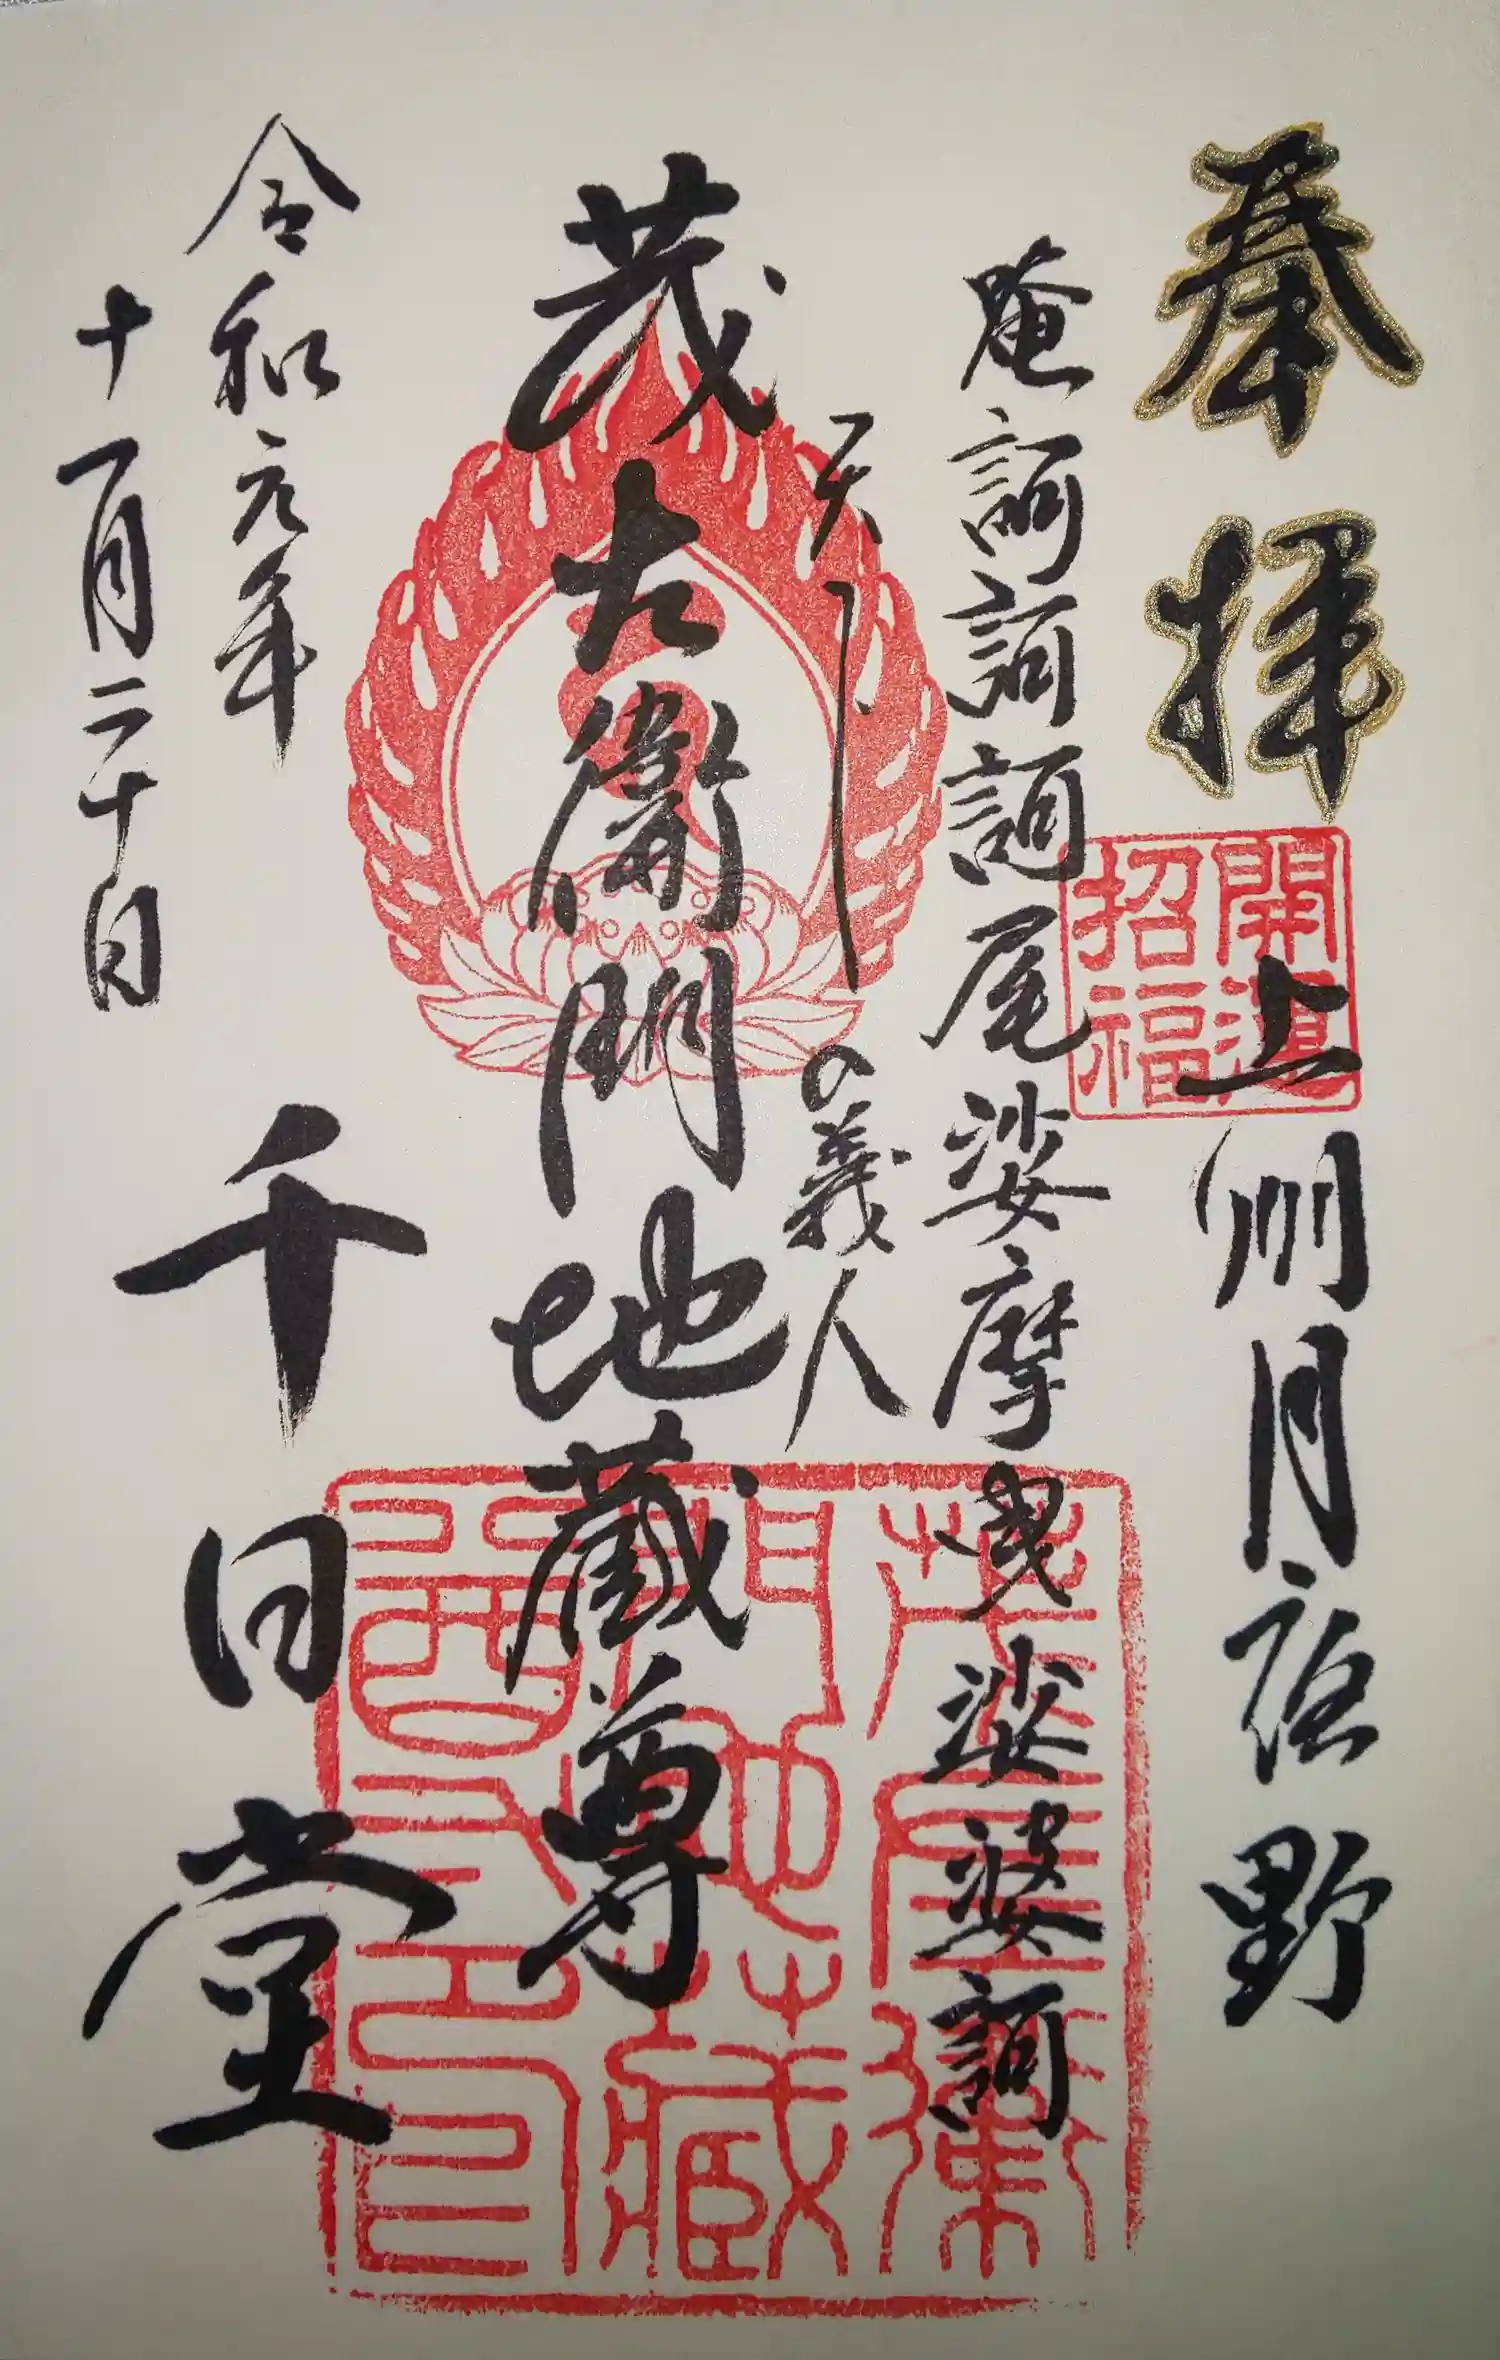 奉拝
上州月夜野
開運
招福
唵訶訶訶尾娑摩曳娑婆訶
天下一の義人
茂左衛門地蔵尊
令和元年
十一月二十日
千日堂
茂左衛
門地蔵
尊